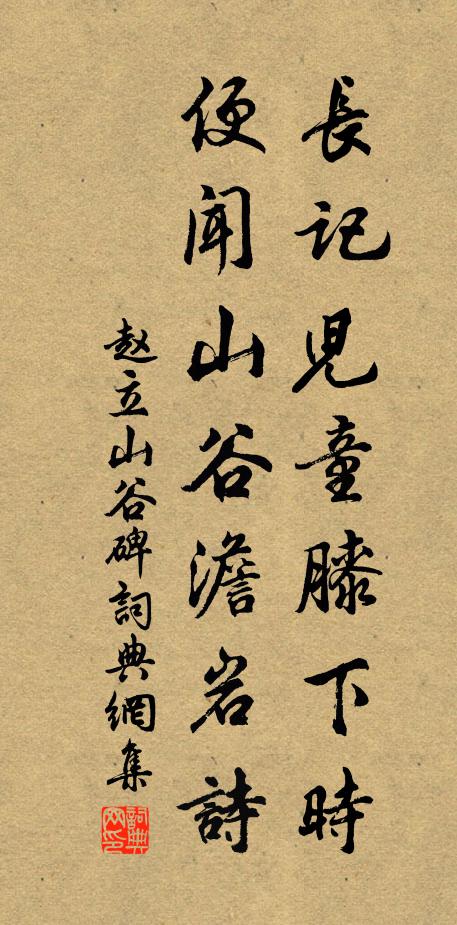 長記兒童膝下時
便聞山谷澹岩詩
赵立山谷碑詞典網集
詞典网印